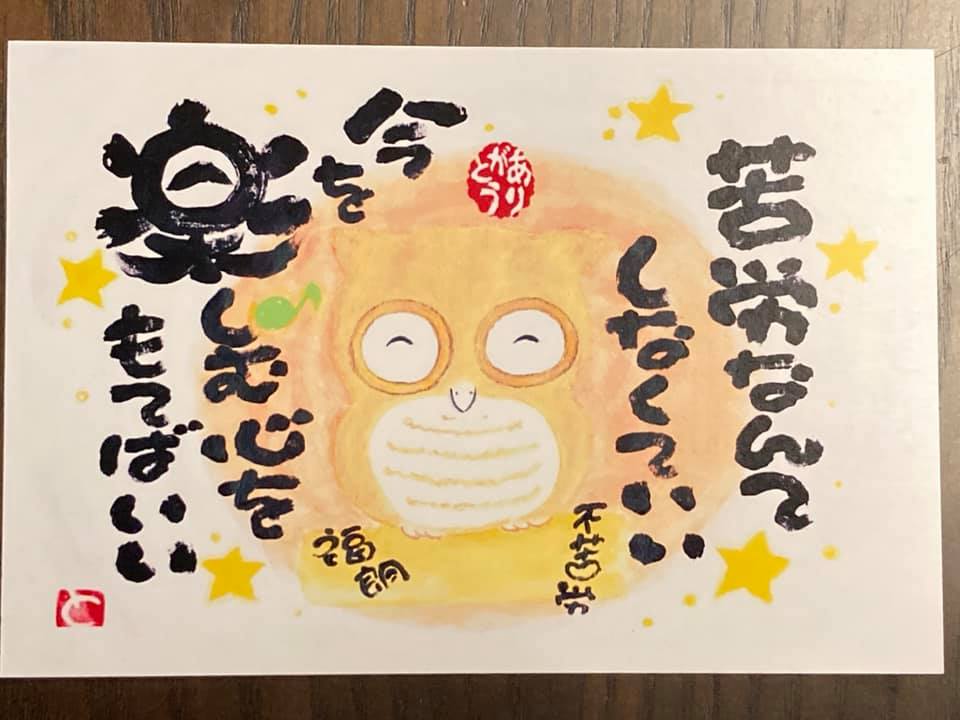 苦労なんて
しなくていい
ありがとう
今を
楽しむ心を
もてばいい
不苦労
福朗
と